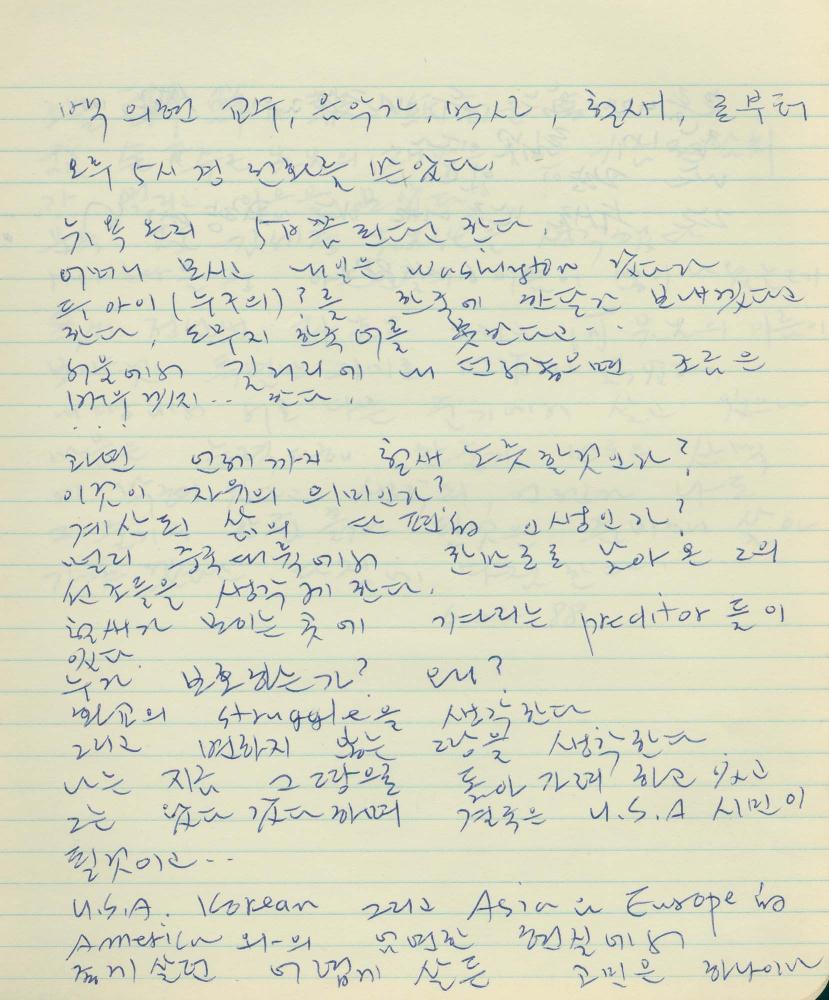 백 의현 교수, 음악가, 박사, 철새, 로부터
오후 5시 경 전화를 받았다.
뉴욕 온지 5日쯤 된다고 한다.
어머니 모시고 내일은 Washington 갔다가
두 아이(누구의)?를 한국에 한달간 보내겠다고
한다, 도무지 한국어를 못한다고..
서울에서 길거리에 내 던져놓으면 조금은
배우겠지.. 한다.
....
과연 언제까지 철새 노릇 할것인가?
이것이 자유의 의미인가?
계산된 삶의 단편的 인생인가?
멀리 중국대륙에서 한반도로 날아 온 그의
선조들을 생각케 한다.
철새가 모이는 곳에 기다리는 preditor 들이
있다.
누가 보호하는가? 왜?
화교의 struggle을 생각한다
그리고 변하지 않는 땅을 생각한다.
나는 지금 그 땅으로 돌아 가려 하고 있고
그는 왔다 갔다 하며 결국은 U.S.A 시민이
될것이고...
U.S.A. Korean 그리고 Asia in Europe的
America 와-의 묘면한 현실에서
쉽게 살던 어렵게 살든 고민은 하나이다